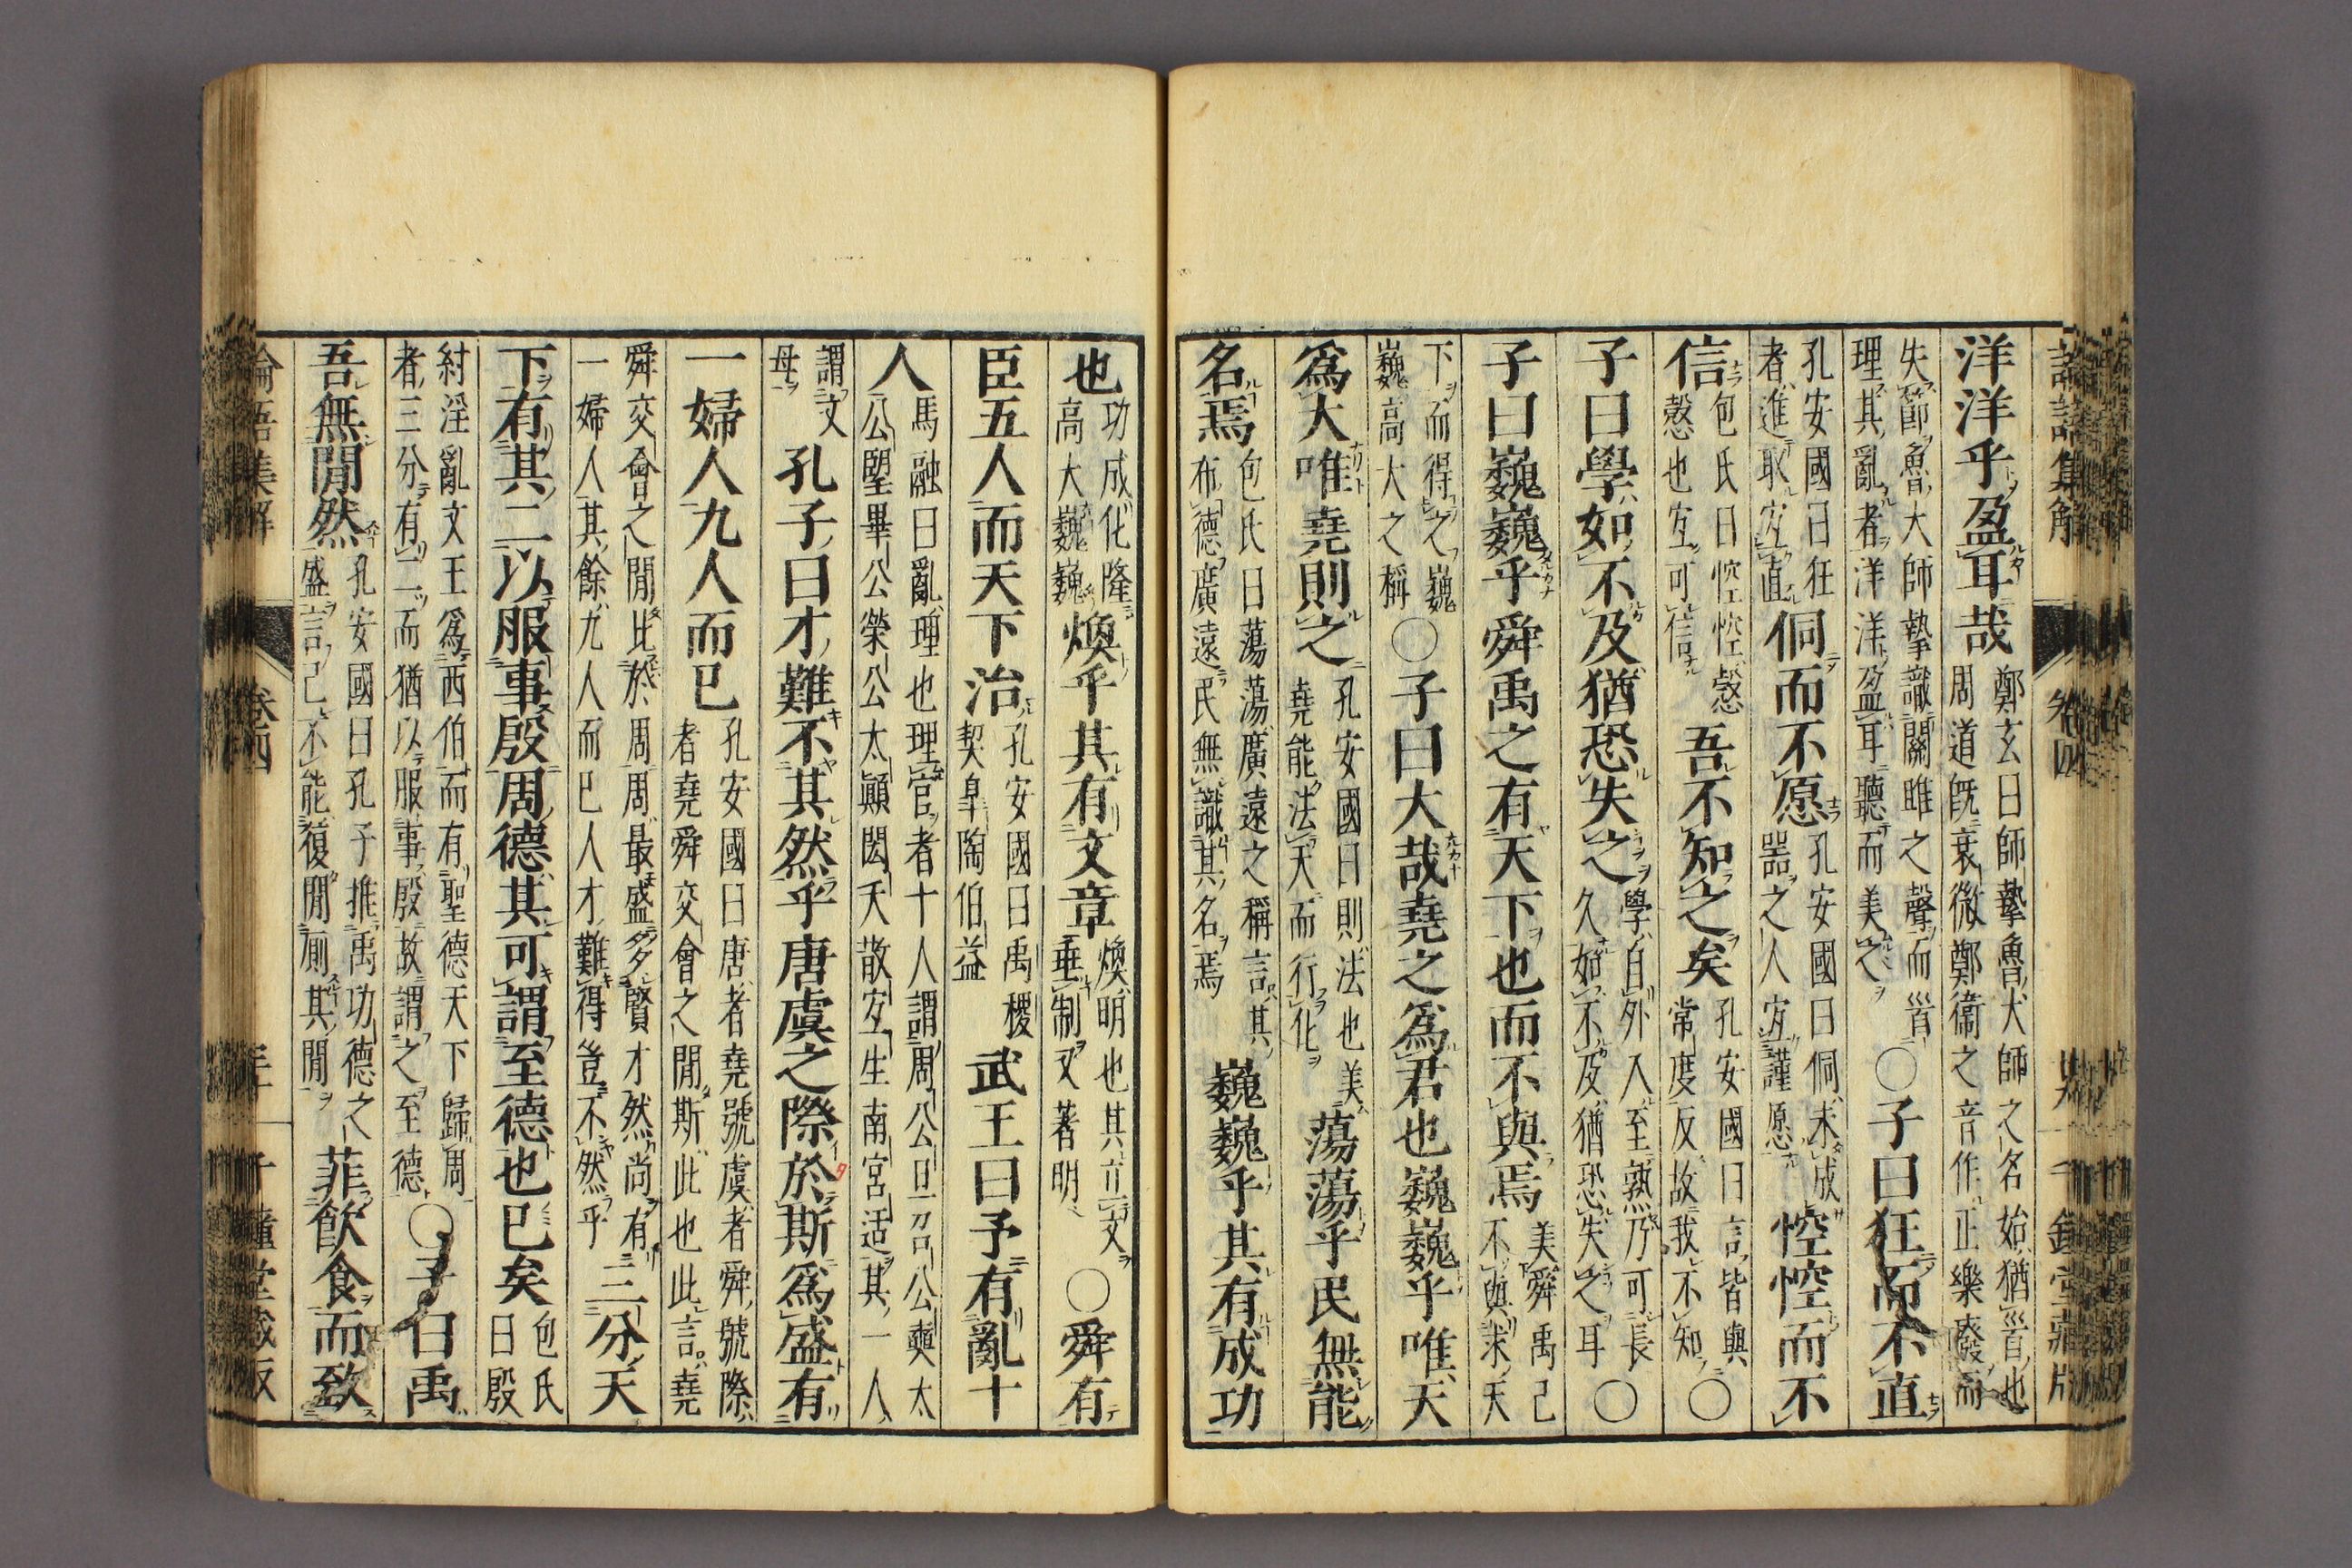 論語集解 卷四 千鍾堂藏版
洋洋乎盈耳哉鄭玄曰師摯魯大師之名始猶首也周道既衰微鄭衞之音作正樂廢而
失節魯大師摯識關雎之聲而首理其亂者洋洋盈耳聽而美之○子曰狂而不直
孔安國曰狂者進取宜直侗而不愿孔安國曰侗未成器之人宜謹愿悾悾而不
信包氏曰悾悾愨愨也宜可信吾不知之矣孔安國曰言皆與常度反故我不知○
子曰學如不及猶恐失之學自外入至熟乃可長久如不及猶恐失之耳○
子曰巍巍乎舜禹之有天下也而不與焉美舜禹己不與求天
下而得之巍巍高大之稱○子曰大哉堯之爲君也巍巍乎唯天
爲大唯堯則之孔安國曰則法也美堯能法天而行化蕩蕩乎民無能
名焉包氏曰蕩蕩廣遠之稱言其布德廣遠民無識其名焉巍巍乎其有成功
也功成化隆高大巍巍煥乎其有文章煥明也其立文垂制又著明○舜有
臣五人而天下治孔安國曰禹稷契皐陶伯益武王曰予有亂十
人馬融曰亂理也理官者十人謂周公旦召公奭太公望畢公榮公太顚閎夭散宜生南宮适其一人
謂文母孔子曰才難不其然乎唐虞之際於斯爲盛有
一婦人九人而已孔安國曰唐者堯號虞者舜號際者堯舜交會之閒斯此也此言堯
舜交會之閒比於周周最盛多賢才然尚有一婦人其餘九人而已人才難得豈不然乎三分天
下有其二以服事殷周德其可謂至德也已矣包氏曰殷
紂淫亂文王爲西伯而有聖德天下歸周者三分有二而猶以服事殷故謂之至德○子曰禹
吾無閒然孔安國曰孔子推禹功德之盛言己不能復閒厠其閒菲飮食而致
論語集解 卷四 千鍾堂藏版